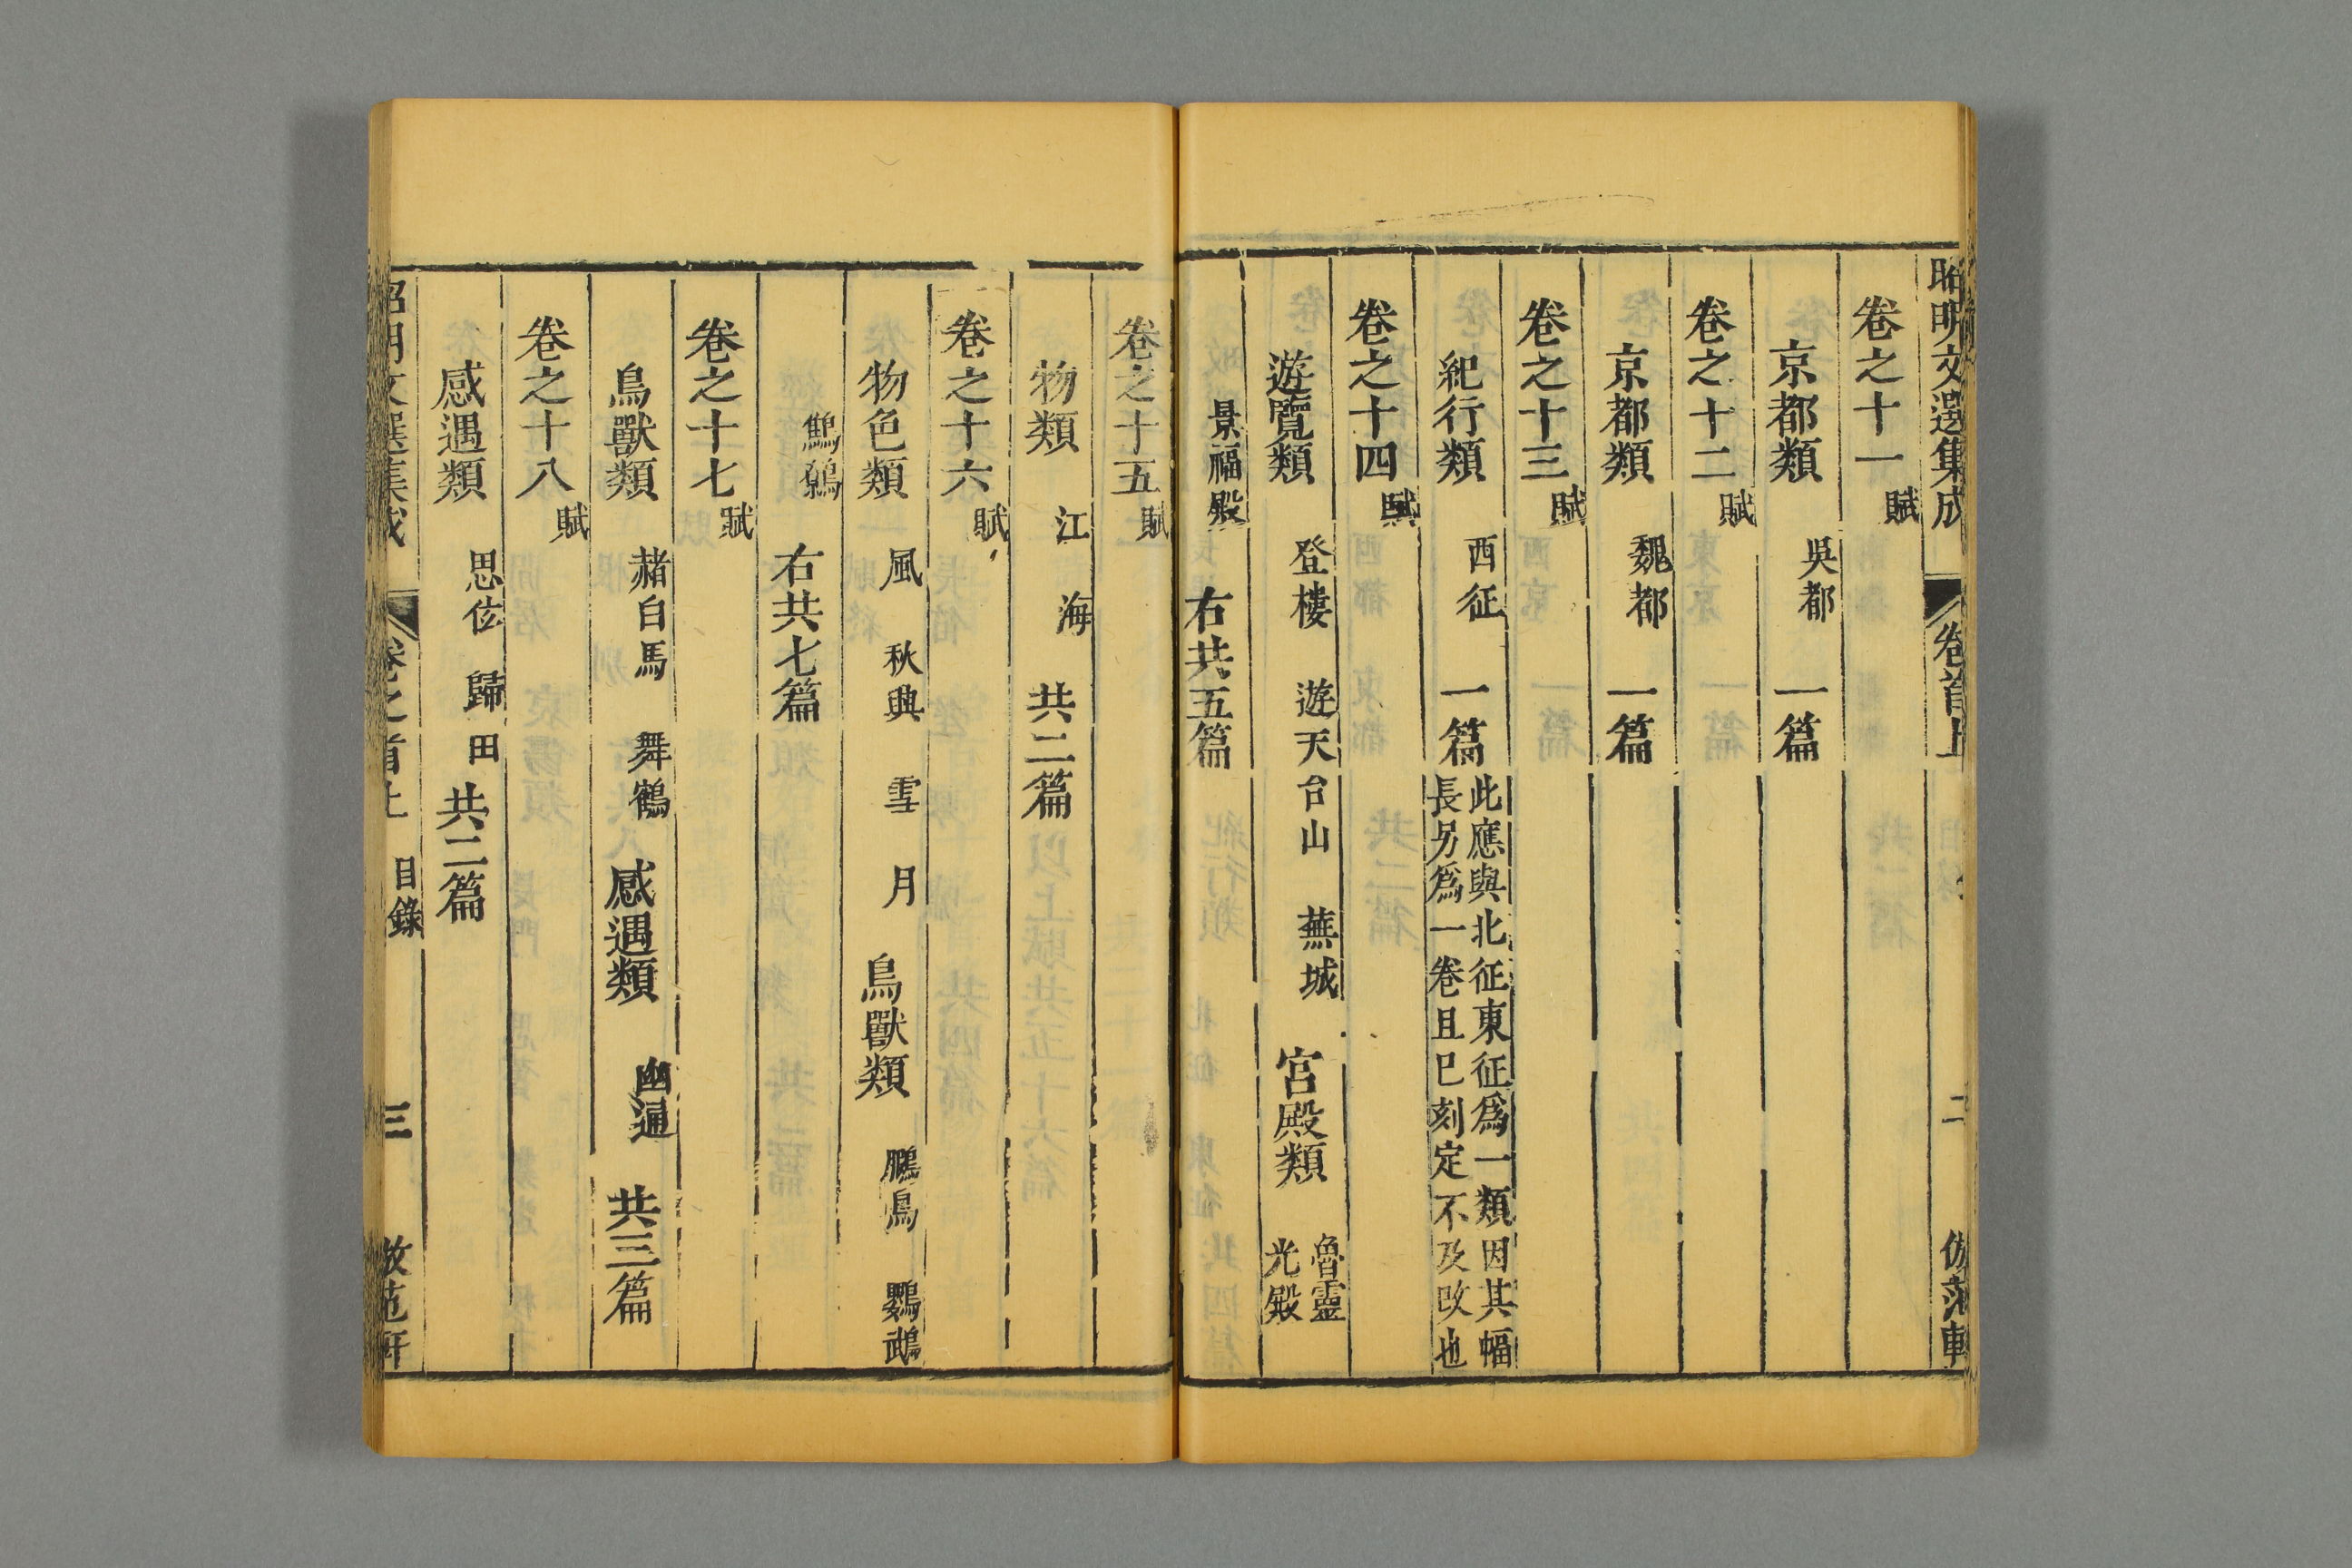 昭明文選集成 卷首上 二 倣范軒
卷之十一 賦
京都類 吳都 一篇
卷之十二 賦
京都類 魏都 一篇
卷之十三 賦
紀行類 西征 一篇 此應與北征東征爲一類因其幅
長另爲一卷且已刻定不及改也
卷之十四 賦
遊覽類 登樓 遊天台山 蕪城 宮殿類 魯靈
光殿
景福殿 右共五篇
卷之十五 賦
物類 江 海 共二篇
卷之十六 賦
物色類 風 秋興 雪 月 鳥獸類 鵩鳥 鸚鵡
鷦鷯 右共七篇
卷之十七 賦
鳥獸類 赭白馬 舞鶴 感遇類 幽通 共三篇
卷之十八 賦
感遇類 思位 歸田 共二篇
昭明文選集成 卷之首上 目錄 三 倣范軒